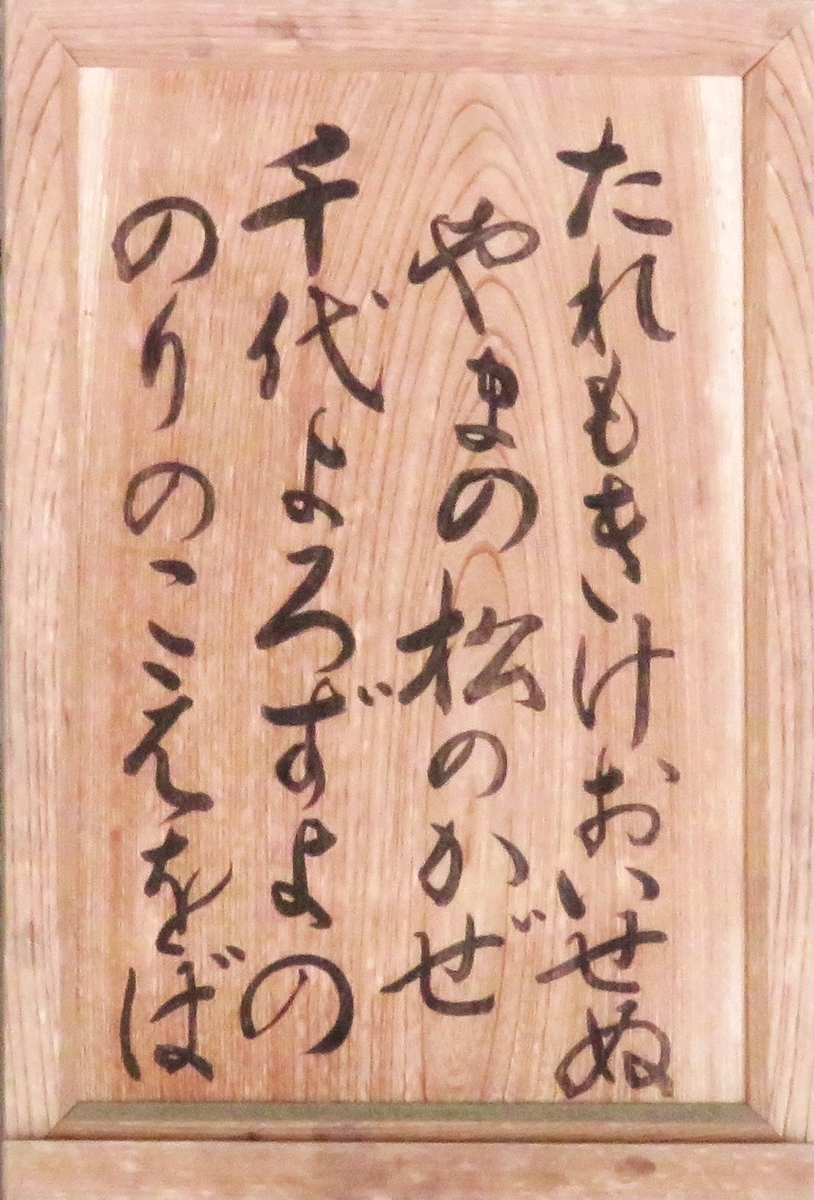 たれもきけおいせぬ
やまの松のかぜ
千代よろずよの
のりのこえをば